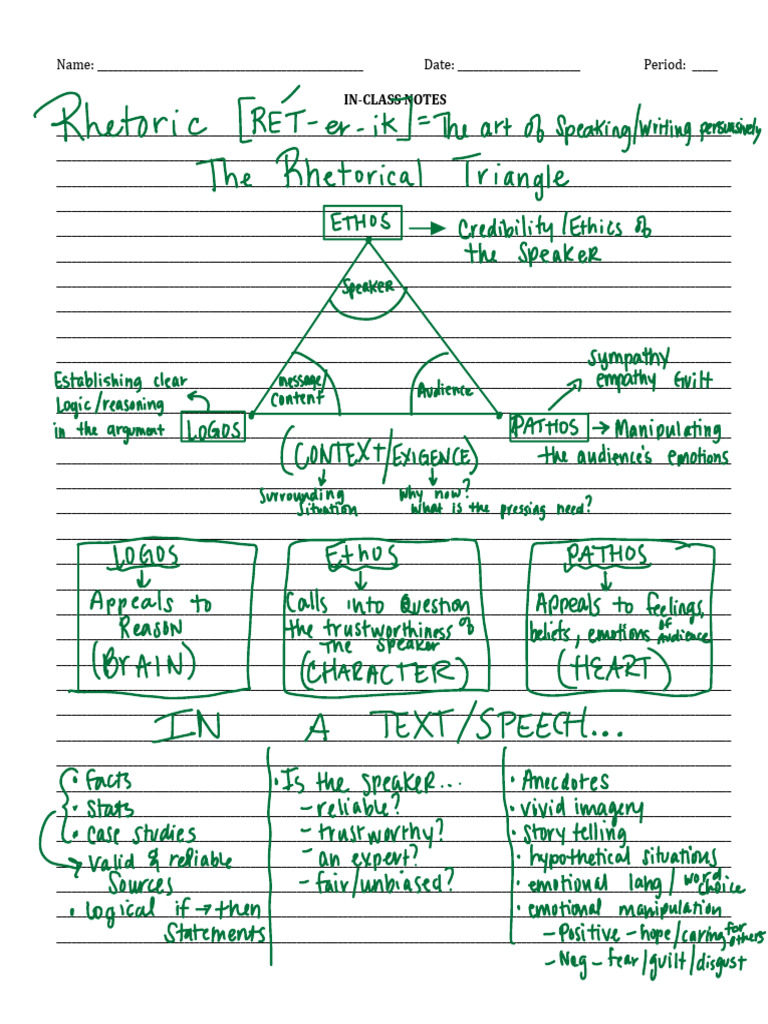 Name: ____ Date: ____ Period: ____
IN-CLASS NOTES
Rhetoric [RÉT-er-ik] = The art of Speaking/Writing persuasively
The Rhetorical Triangle
ETHOS → Credibility/Ethics of
the Speaker
Speaker
Establishing clear
Logic/reasoning
in the argument
LOGOS
message/
Content
Audience
Sympathy
empathy Guilt
PATHOS → Manipulating
the audience's emotions
(CONTEXT/EXIGENCE)
Surrounding
Situation
Why now?
What is the pressing need?
LOGOS
↓
Appeals to
Reason
(BrAIN)
EthoS
↓
Calls into Question
the trustworthiness of
The speaker
(CHARACTER)
PATHOS
↓
Appeals to feelings,
beliefs, emotions of audience
(HEART)
IN A TEXT/SPEECH...
• Facts
• Stats
• Case studies
→ Valid & reliable
Sources
• Logical if → then
Statements
• Is the speaker...
- reliable?
- trustworthy?
- an expert?
- fair/unbiased?
• Anecdotes
• vivid imagery
• Story telling
• hypothetical situations
• emotional lang/word choice
• emotional manipulation
- Positive - hope/caring for others
- Neg - fear/guilt/disgust